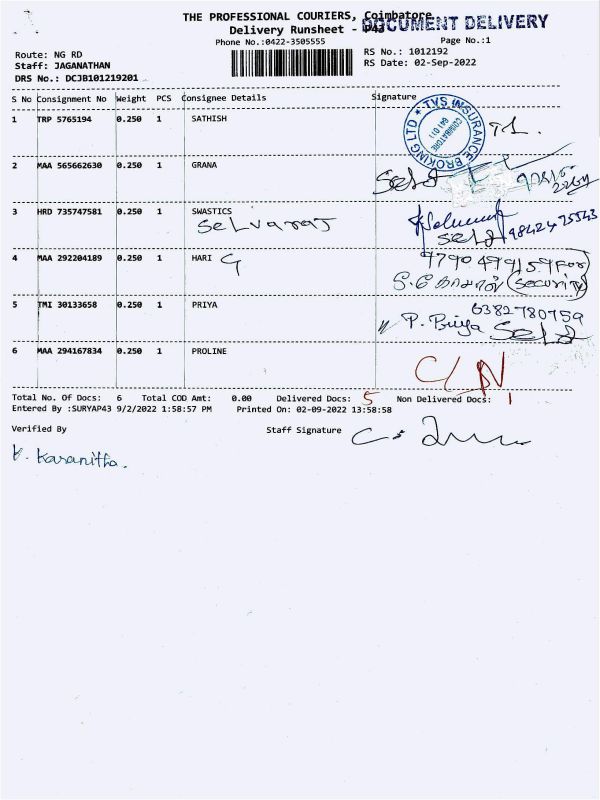 THE PROFESSIONAL COURIERS, Coimbatore
DOCUMENT DELIVERY
Delivery Runsheet - P43
Phone No.:0422-3505555
Page No.:1
Route: NG RD
RS No.: 1012192
Staff: JAGANATHAN
RS Date: 02-Sep-2022
DRS No.: DCJB101219201
S No Consignment No Weight PCS Consignee Details Signature
1 TRP 5765194 0.250 1 SATHISH
TVS INSURANCE BROKING LTD
COIMBATORE
641 011
2 MAA 565662630 0.250 1 GRANA
Self
3 HRD 735747581 0.250 1 SWASTICS
Selvaraj
Self 9842475543
4 MAA 292204189 0.250 1 HARI G
9790499159 For
(Security)
5 TMI 30133658 0.250 1 PRIYA
6382780759
P. Priya Self
6 MAA 294167834 0.250 1 PROLINE
C/N
Total No. Of Docs: 6 Total COD Amt: 0.00 Delivered Docs: 5 Non Delivered Docs: 1
Entered By :SURYAP43 9/2/2022 1:58:57 PM Printed On: 02-09-2022 13:58:58
Verified By Staff Signature